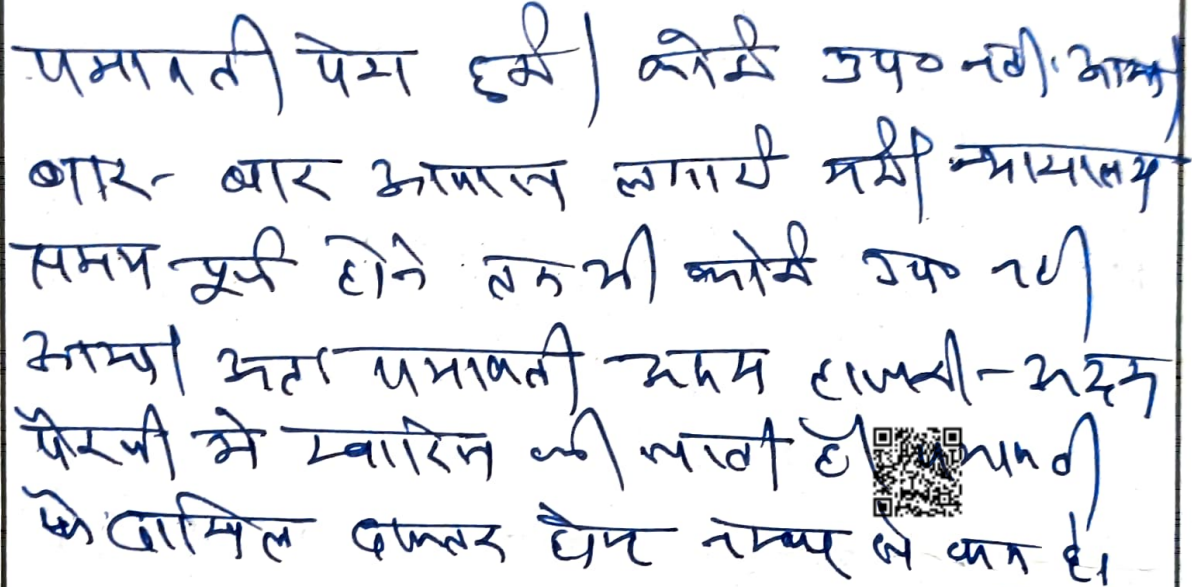 पत्रावली पेश हुई। कोई उप० नहीं आया।
बार-बार आवाज लगाई गयी न्यायालय
समय पूर्ण होने तक भी कोई उप० नहीं
आया। अतः पत्रावली अदम हाजरी-अदम
पैरवी में खारिज की जाती है। पत्रावली
दाखिल दफ्तर होकर नम्बर से कम है।